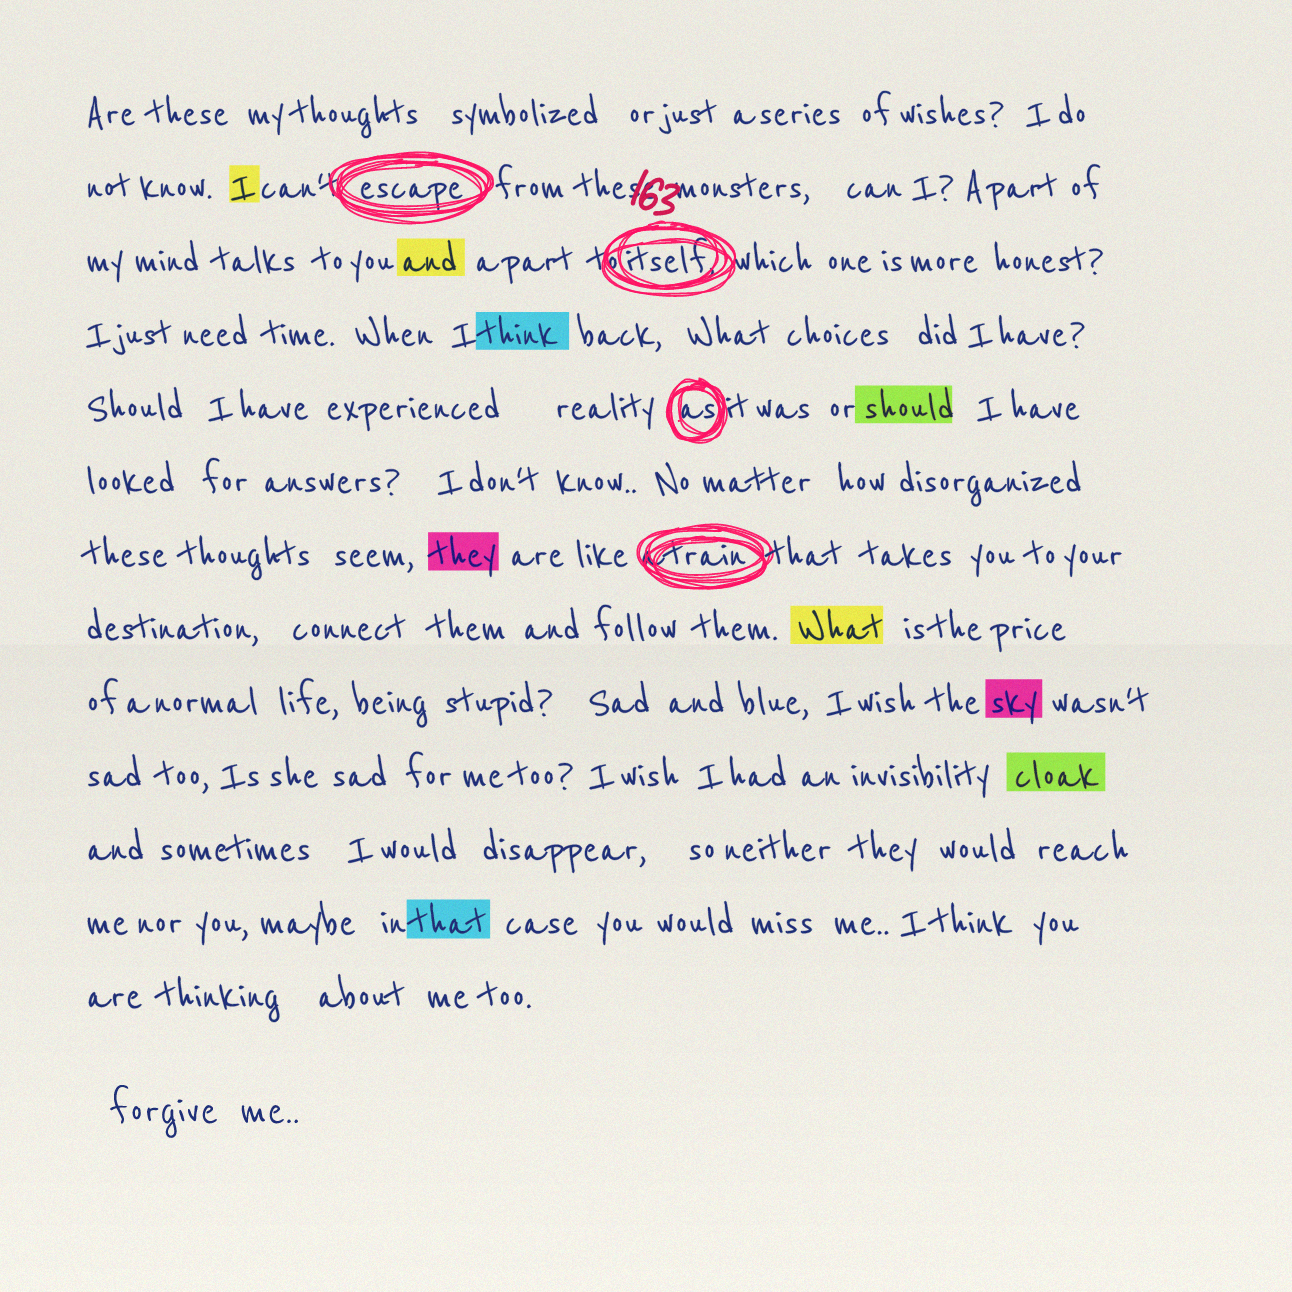 Are these my thoughts symbolized or just a series of wishes? I do
not know. I can't escape from these monsters, can I? A part of
163
my mind talks to you and a part to itself, which one is more honest?
I just need time. When I think back, What choices did I have?
Should I have experienced reality as it was or should I have
looked for answers? I don't know.. No matter how disorganized
these thoughts seem, they are like a train that takes you to your
destination, connect them and follow them. What is the price
of a normal life, being stupid? Sad and blue, I wish the sky wasn't
sad too, Is she sad for me too? I wish I had an invisibility cloak
and sometimes I would disappear, so neither they would reach
me nor you, maybe in that case you would miss me.. I think you
are thinking about me too.
forgive me..